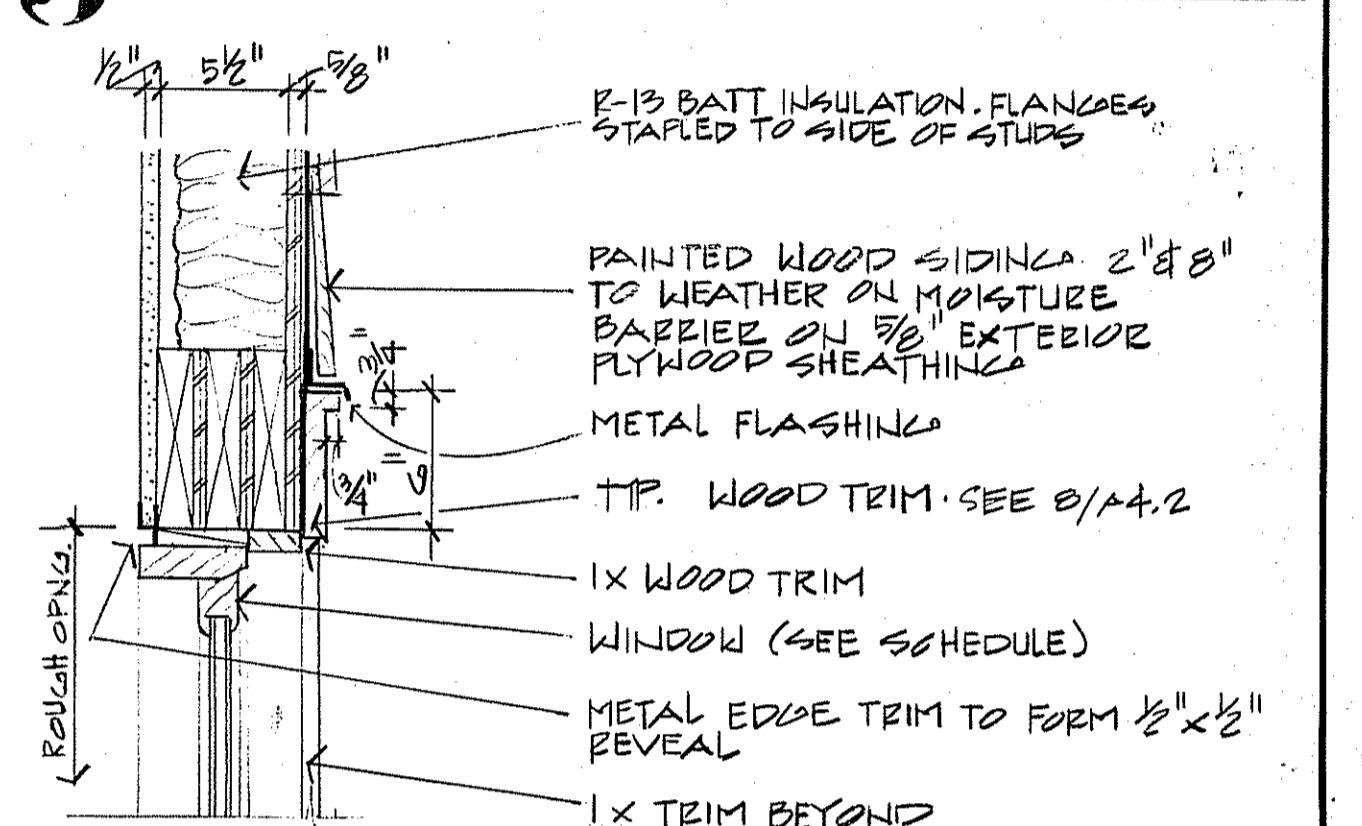 1/2" 5 1/2" 5/8"
R-13 BATT INSULATION. FLANGES
STAPLED TO SIDE OF STUDS
PAINTED WOOD SIDING. 2" & 8"
TO WEATHER ON MOISTURE
BARRIER ON 5/8" EXTERIOR
PLYWOOD SHEATHING
3/4"
METAL FLASHING
3/4"
TYP. WOOD TRIM. SEE 8/A4.2
1X WOOD TRIM
WINDOW (SEE SCHEDULE)
ROUGH OPNG.
METAL EDGE TRIM TO FORM 1/2" x 1/2"
REVEAL
1X TRIM BEYOND